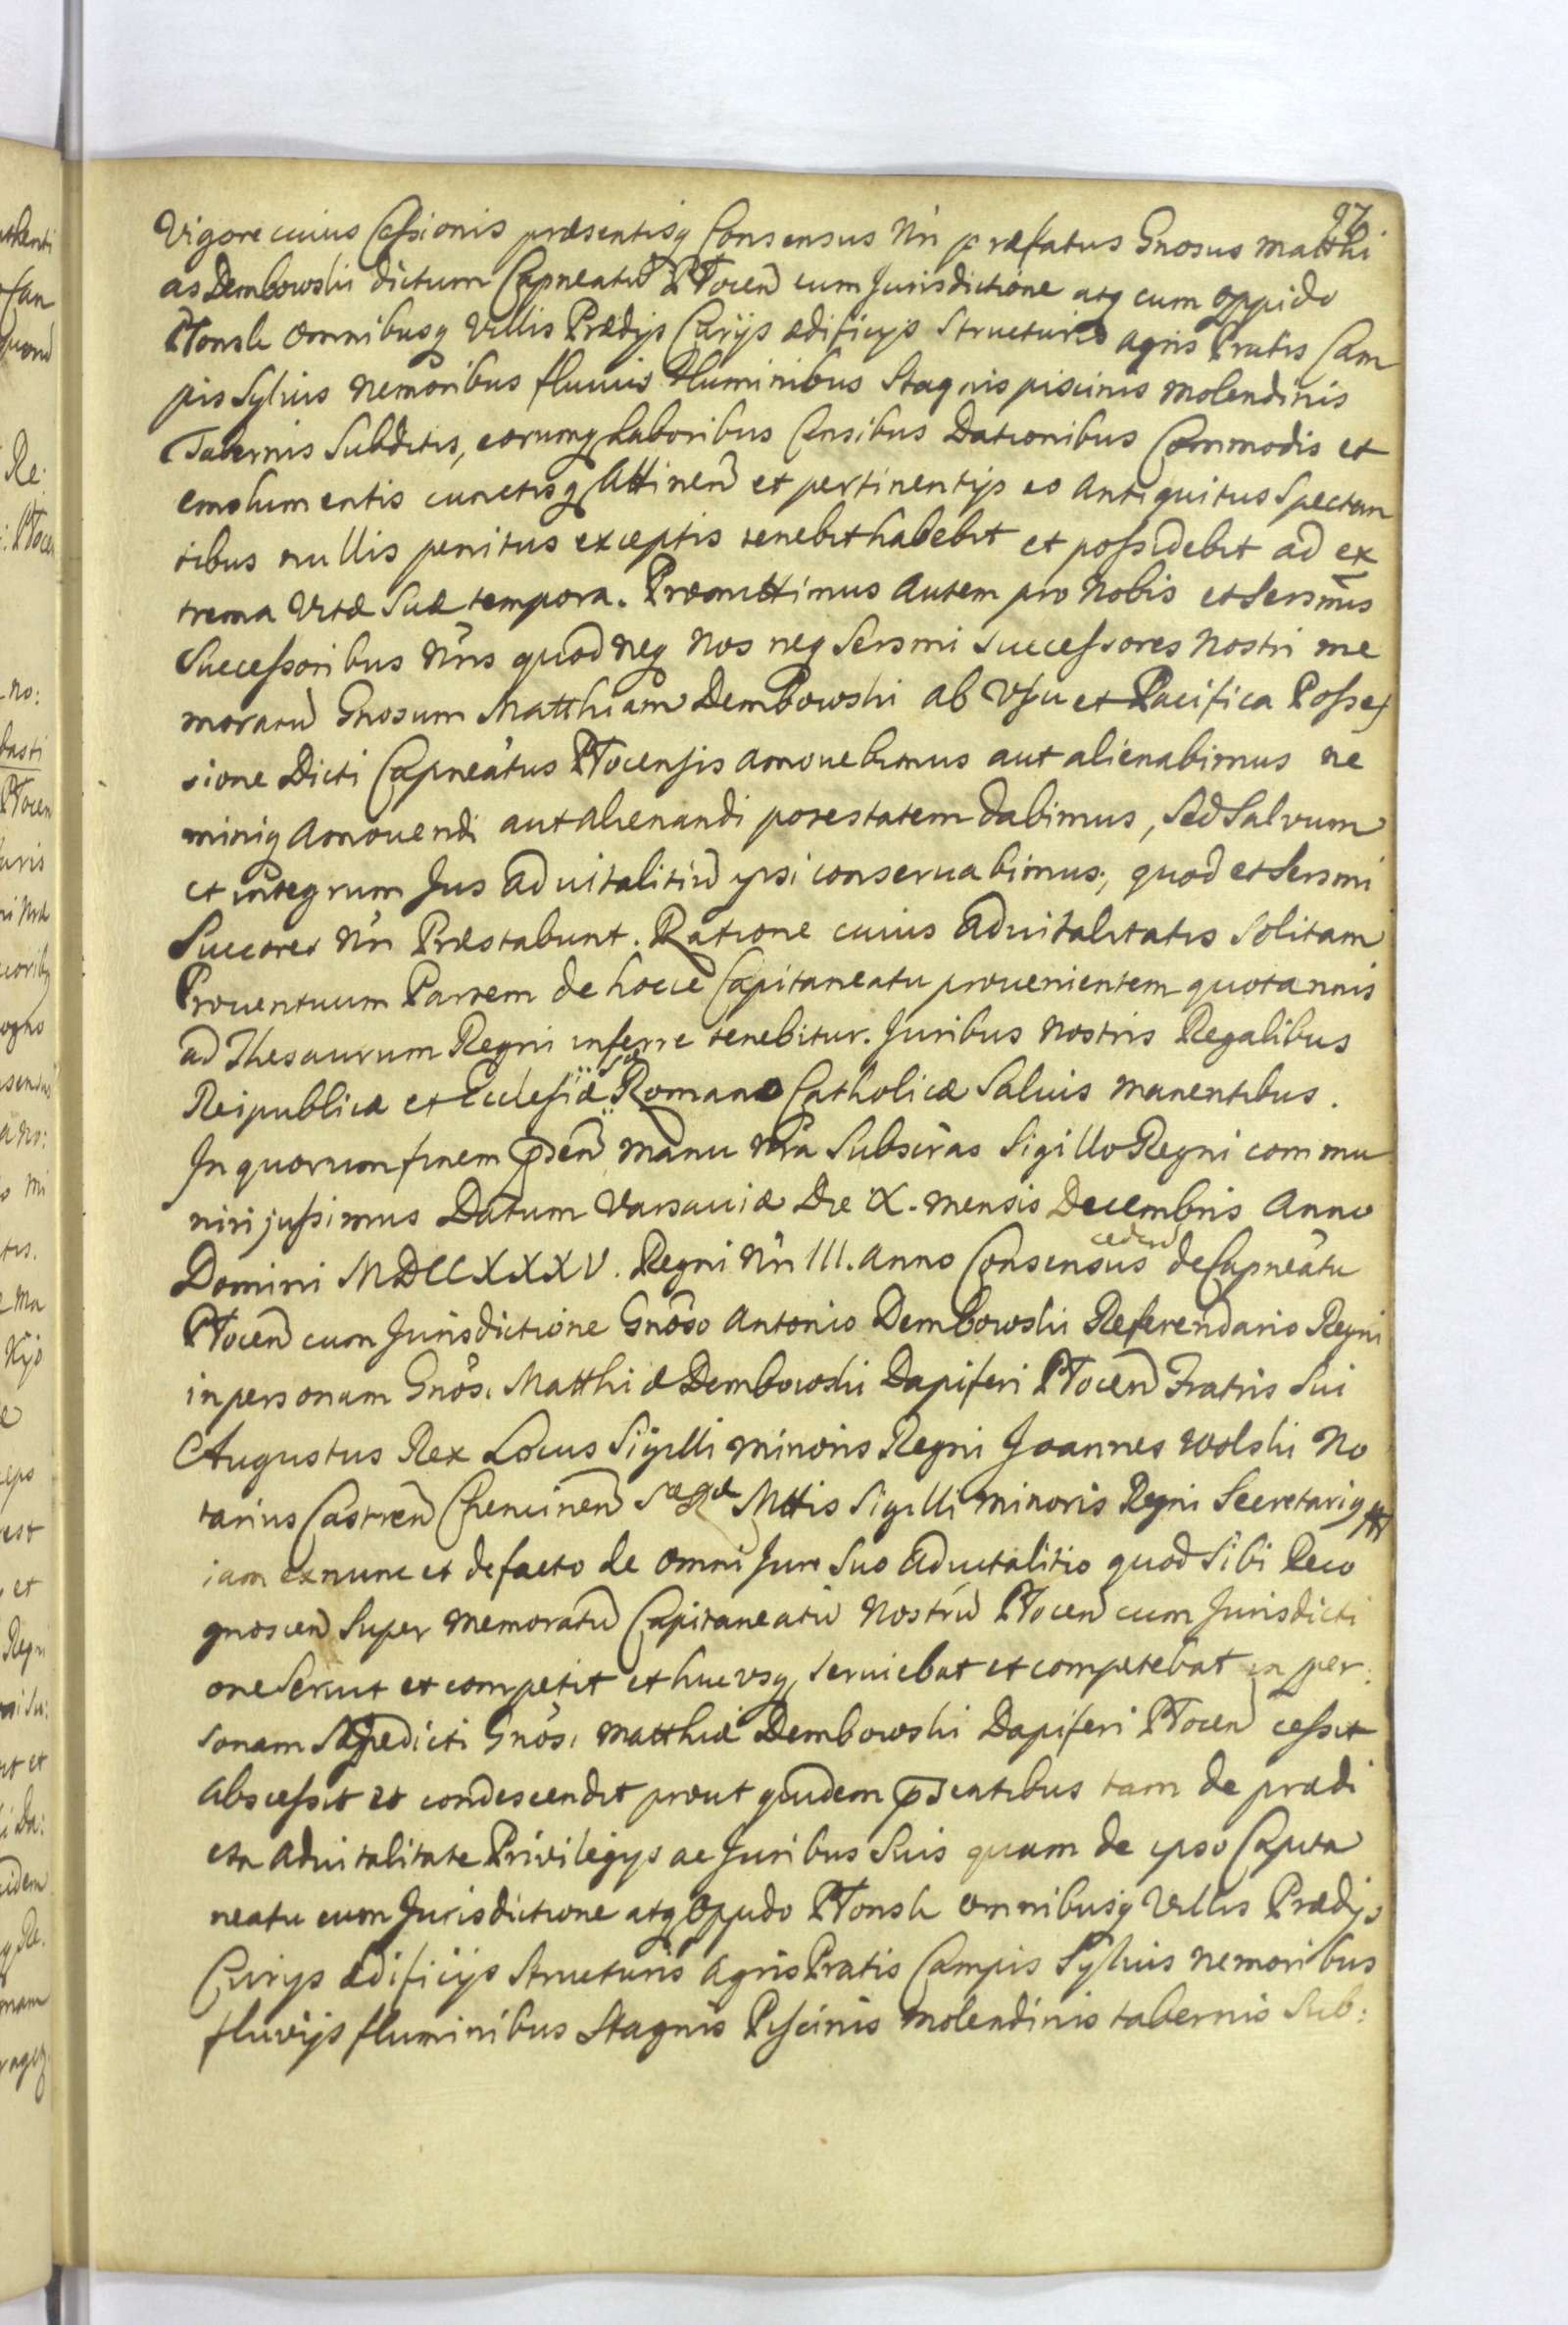 97
Vigore cuius Cessionis præsentisq Consensus Nri præfatus Gnosus Matthi
as Dembowski dictum Capneatũ Płocen cum Jurisdictione atq cum oppido
Płonsk omnibusq Villis Prædijs Curijs ædificijs Structuris agris Pratis Cam
pis Sylvis nemoribus fluuiis Fluminibus Stagnis piscinis molendinis
Tabernis Subditis, eorumq Laboribus Censibus Dationibus Commodis et
emolumentis cunctisq Attinen et pertinentijs eo Antiquitus Spectan
tibus nullis penitus exceptis tenebit habebit et possidebit ad ex
trema Vitæ Suæ tempora. Promittimus Autem pro Nobis et Sersmis
Successoribus Nris quod neq Nos neq Sersmi Successores Nostri me
moratũ Gnosum Matthiam Dembowski ab Vsu et Pacifica Posses
sione Dicti Capneatus Płocensis amouebimus aut alienabimus ne
miniq Amouendi aut Alienandi potestatem dabimus, Sed Salvum
et integrum Jus Aduitalitiũ ipsi conseruabimus, quod et Sersmi
Succores Nri Præstabunt. Ratione cuius Aduitalitatis Solitam
Prouentuum Partem de hocce Capitaneatu prouenientem quotannis
ad Thesaurum Regni inferre tenebitur. Juribus Nostris Regalibus
Reipublicæ et Ecclesiæ Sæ Romanæ Catholicæ Saluis manentibus.
In quorum finem pSen manu Nra Subscras Sigillo Regni commu
niri jussimus Datum Varsauiæ Die X. mensis Decembris Anno
Domini MDCCXXXV. Regni Nri III. Anno Consensus cedend de Capneatu
Płocen cum Jurisdictione Gnoso Antonio Dembowski Referendario Regni
in personam Gnosi Matthiæ Dembowski Dapiferi Płocen Fratris Sui
Augustus Rex Locus Sigilli minoris Regni Joannes Wolski No
tarius Castren Chencinen Sæ Ræ Mttis Sigilli minoris Regni Secretariq
iam ex nunc et de facto de omni Jure Suo Aduitalitio quod Sibi Reco
gnoscen Super memoratũ Capitaneatũ Nostrũ Płocen cum Jurisdicti
one Seruit et competit et hucvsq, Seruiebat et competebat in per
sonam Sæpedicti Gnosi Matthiæ Dembowski Dapiferi Płocen cessit
abscessit et condescendit prout quidem pSentibus tam de prædi
cta Aduitalitate Privilegijs ac Juribus Suis quam de ipso Capita
neatu cum Jurisdictione atq Oppido Płonsk omnibusq Villis Prædijs
Curijs ædificijs Structuris Agris Pratis Campis Sylvis nemoribus
fluvijs fluminibus Stagnis Piscinis molendinis tabernis Sub: